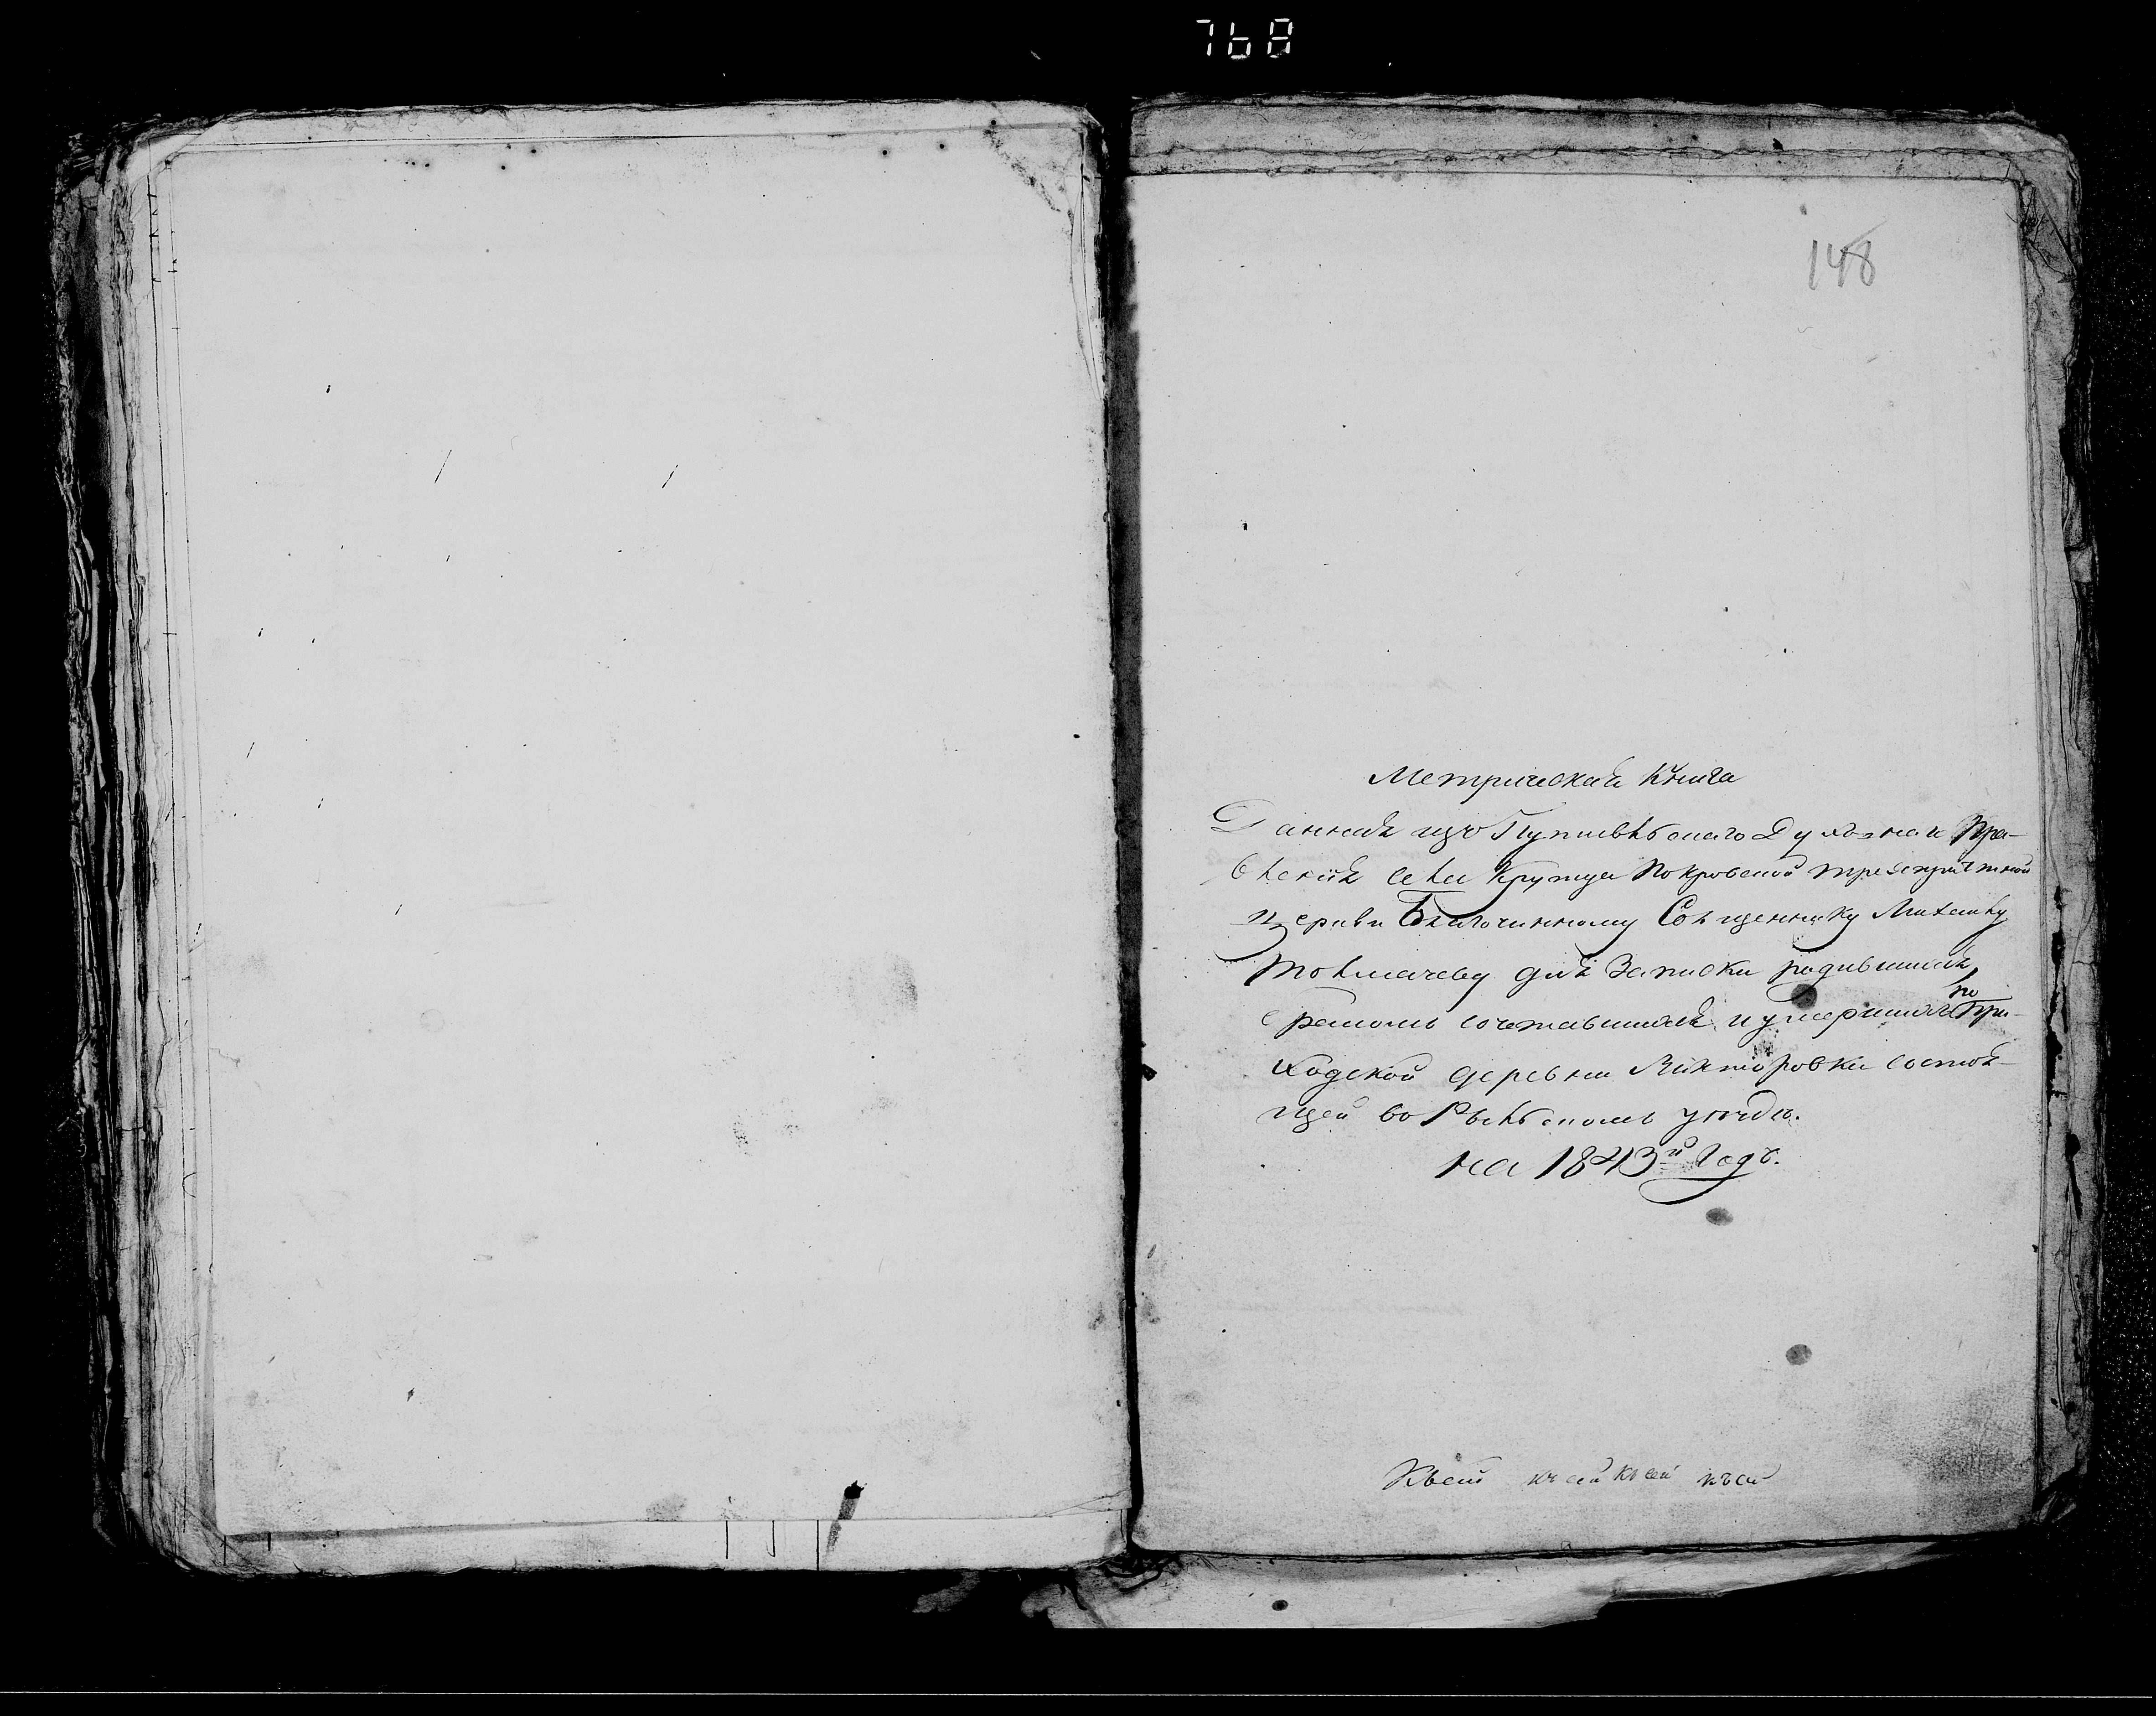 768
148
Метрическая книга
Данная изъ Путивльскаго Духовнаго Пра-
вленія села Крупца Покровской трехпритчтной
церкви Благочинному Священнику Михаилу
Толмачеву для Записки родившихся,
бракомъ сочетавшихся и умершихъ по При-
ходской деревни Викторовки состоя-
щей въ Рыльскомъ уездѣ.
на 1843й Годъ.
къ сей къ сей къ сей